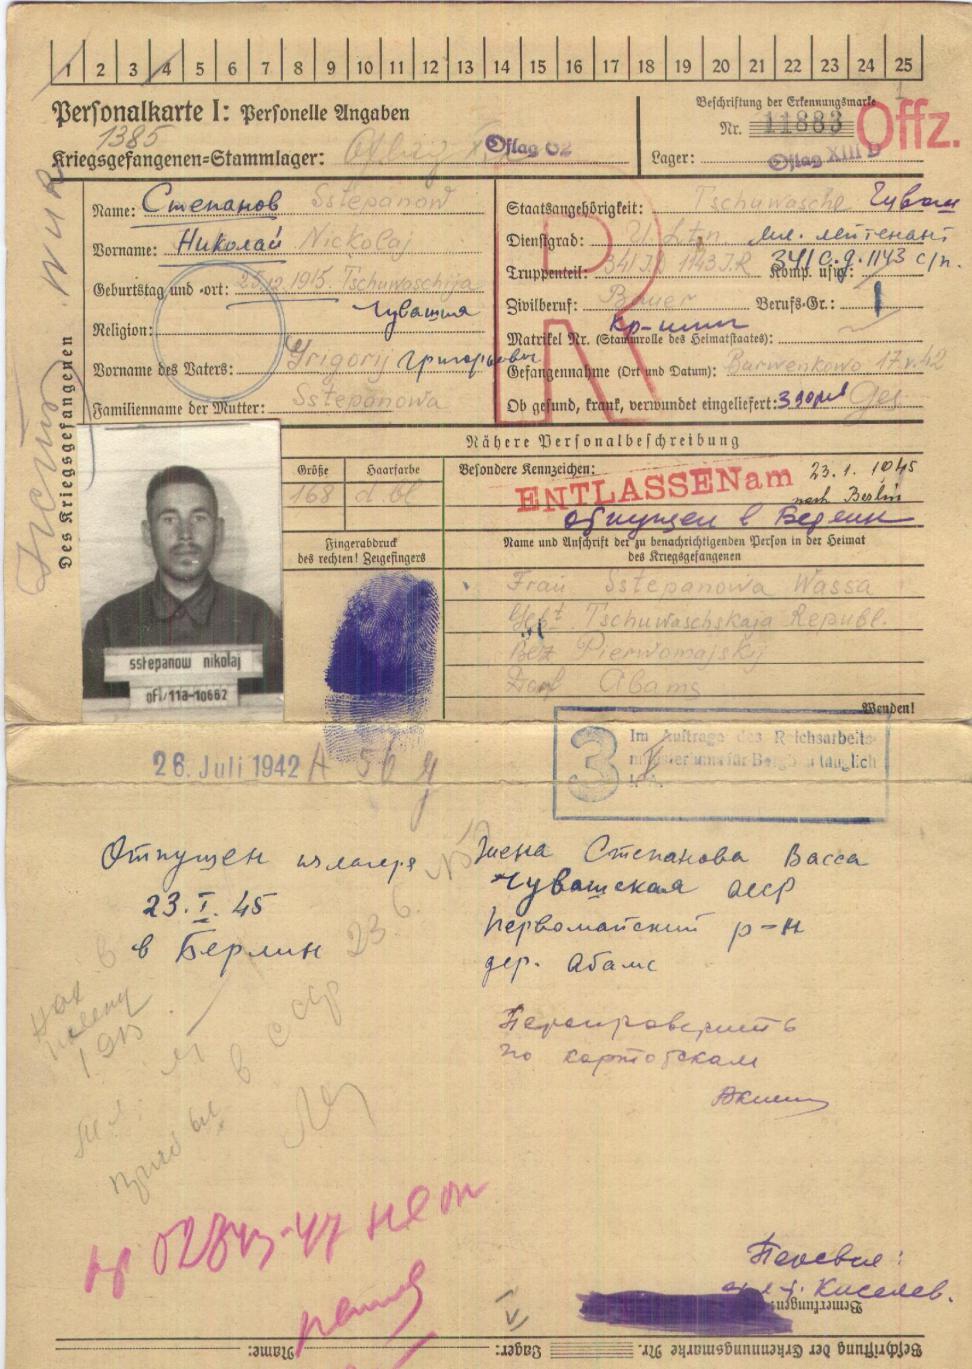 1 2 3 4 5 6 7 8 9 10 11 12 13 14 15 16 17 18 19 20 21 22 23 24 25
Personalkarte I: Personelle Angaben
1385
Kriegsgefangenen-Stammlager: Oflag 62
Beschriftung der Erkennungsmarke
Nr. 11883
Offz.
Lager: Oflag XIII D
Des Kriegsgefangenen
Name: Степанов Sstepanow
Vorname: Николай Nickolaj
Geburtstag und -ort: 25.12.1915. Tschuwaschija
Чувашия
Religion:
Vorname des Vaters: Grigorij Григорьевич
Familienname der Mutter: Sstepanowa
Staatsangehörigkeit: Tschuwasche Чуваш
Dienstgrad: U. Ltn мл. лейтенант
Truppenteil: 341 I.D 1143 I.R Komp. usw.: 341 с.д. 1143 с/п.
Zivilberuf: Bauer Berufs-Gr.: 1
Кр-нин
Matrikel Nr. (Stammrolle des Heimatstaates):
Gefangennahme (Ort und Datum): Barwenkowo 17.V.42
Ob gesund, krank, verwundet eingeliefert: здоров Ges
R
Nähere Personalbeschreibung
Größe Haarfarbe
168 d. bl
Besondere Kennzeichen:
ENTLASSEN am 23.1.1945
nach Berlin
отпущен в Берлин
Fingerabdruck
des rechten! Zeigefingers
Name und Anschrift der zu benachrichtigenden Person in der Heimat
des Kriegsgefangenen
Frau Sstepanowa Wassa
Gebt Tschuwaschskaja Republ.
Bez Pierwomajskij
Dorf Abams
sstepanow nikolaj
ofl/11a-10662
Wenden!
3 Im Auftrage des Reichsarbeits-
ministeriums für Bergbau tauglich
26. Juli 1942
Отпущен из лагеря
23.I.45
в Берлин
Жена Степанова Васса
Чувашская АССР
Первомайский р-н
дер. Абамс
23.6.
в СССР
прибыл
Перепроверить
по картотекам
Перевел:
Киселев.
Bemerkungen:
Beschriftung der Erkennungsmarke Nr. Lager: Name: